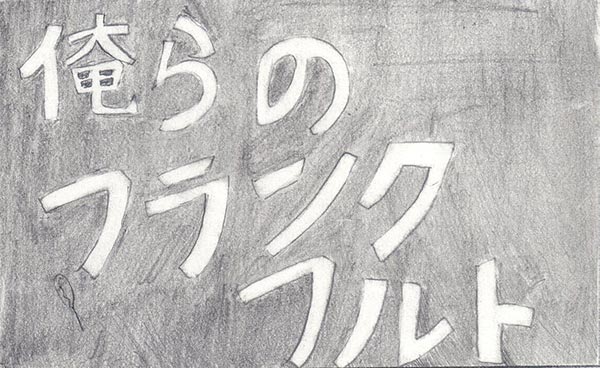 俺らの
フランク
フルト